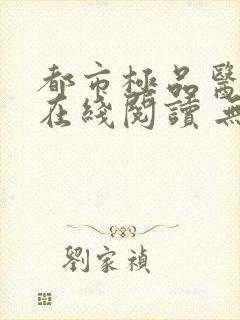 都市極品醫
在綫閱讀 無
劉家禎